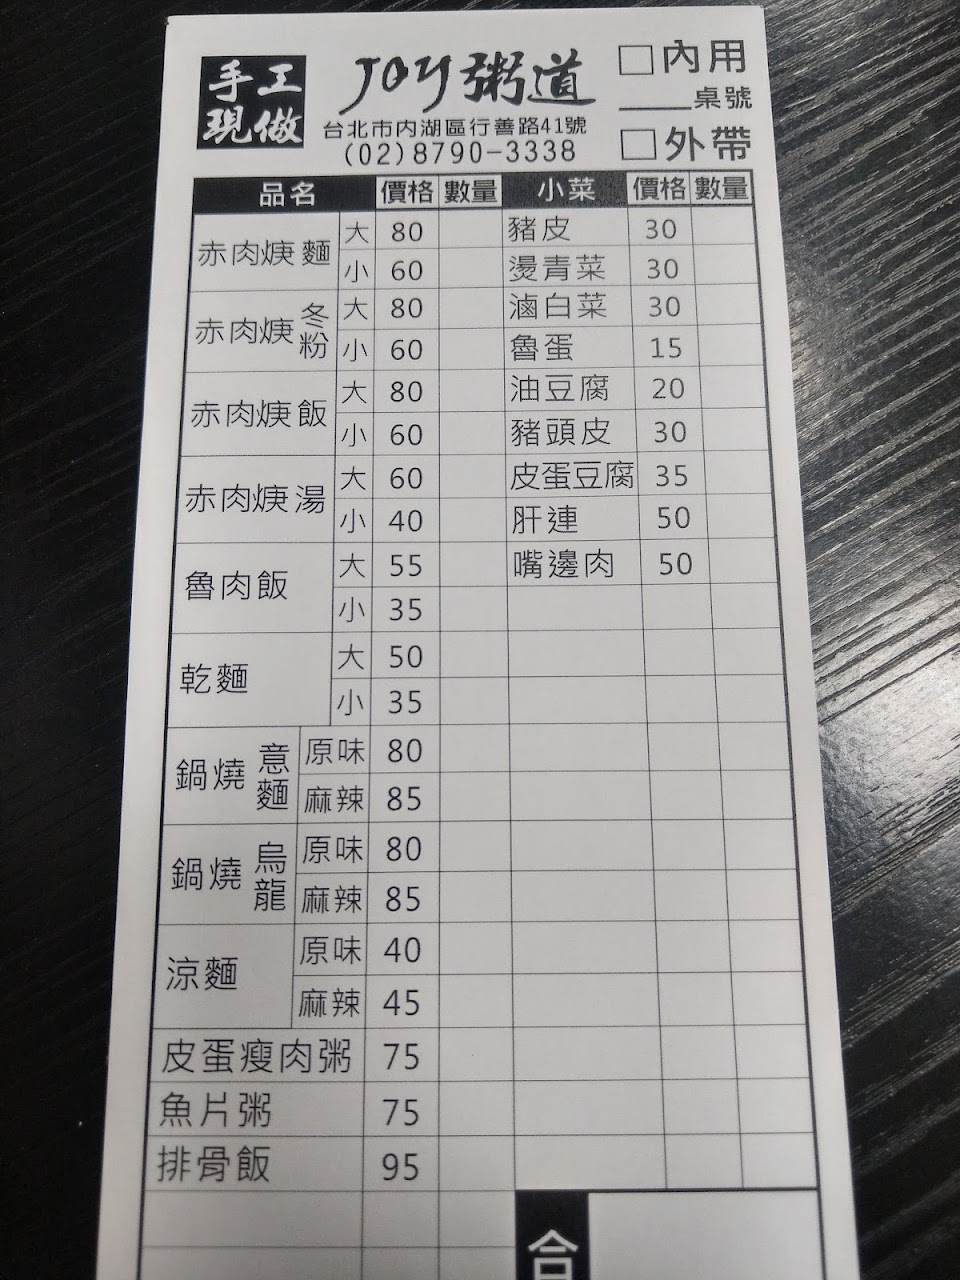 手工
現做
JOY粥道
台北市内湖區行善路41號
(02)8790-3338
□內用
___桌號
□外帶
品名 價格 數量 小菜 價格 數量
赤肉焿麵 大 80 豬皮 30
小 60 燙青菜 30
赤肉焿冬粉 大 80 滷白菜 30
小 60 魯蛋 15
赤肉焿飯 大 80 油豆腐 20
小 60 豬頭皮 30
赤肉焿湯 大 60 皮蛋豆腐 35
小 40 肝連 50
魯肉飯 大 55 嘴邊肉 50
小 35
乾麵 大 50
小 35
鍋燒意麵 原味 80
麻辣 85
鍋燒烏龍 原味 80
麻辣 85
涼麵 原味 40
麻辣 45
皮蛋瘦肉粥 75
魚片粥 75
排骨飯 95
合